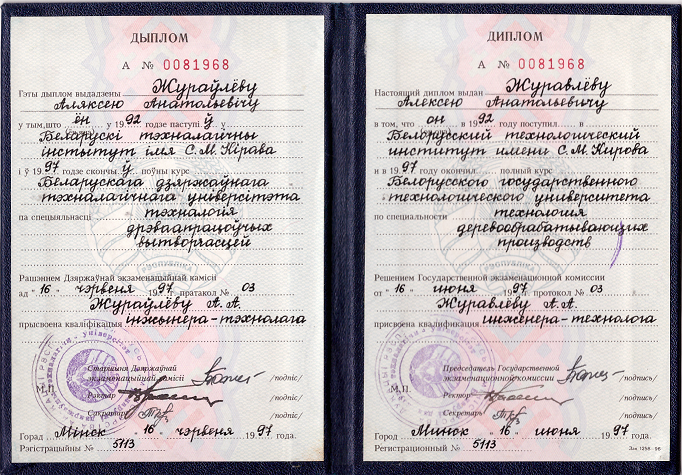 ДЫПЛОМ
А № 0081968
Гэты дыплом выдадзены Жураўлёву
Аляксею Анатольевічу
у тым, што ён у 1992 годзе паступіў у
Беларускі тэхналагічны
інстытут імя С.М. Кірава
і ў 1997 годзе скончыў поўны курс
Беларускага дзяржаўнага
тэхналагічнага універсітэта
па спецыяльнасці тэхналогія
дрэваапрацоўчых
вытворчасцей
Рашэннем Дзяржаўнай экзаменацыйнай камісіі
ад "16" чэрвеня 1997 г. пратакол № 03
Жураўлёву А. А.
прысвоена кваліфікацыя інжынера-тэхнолага
Старшыня Дзяржаўнай
экзаменацыйнай камісіі /подпіс/
М.П. Рэктар /подпіс/
Сакратар /подпіс/
Горад Мінск "16" чэрвеня 1997 года.
Рэгістрацыйны № 5113
ДИПЛОМ
А № 0081968
Настоящий диплом выдан Журавлёву
Алексею Анатольевичу
в том, что он в 1992 году поступил в
Белорусский технологический
институт имени С.М. Кирова
и в 1997 году окончил полный курс
Белорусского государственного
технологического университета
по специальности технология
деревообрабатывающих
производств
Решением Государственной экзаменационной комиссии
от "16" июня 1997 г. протокол № 03
Журавлёву А. А.
присвоена квалификация инженера-технолога
Председатель Государственной
экзаменационной комиссии /подпись/
М.П. Ректор /подпись/
Секретарь /подпись/
Город Минск "16" июня 1997 года.
Регистрационный № 5113
Зак 1258-96